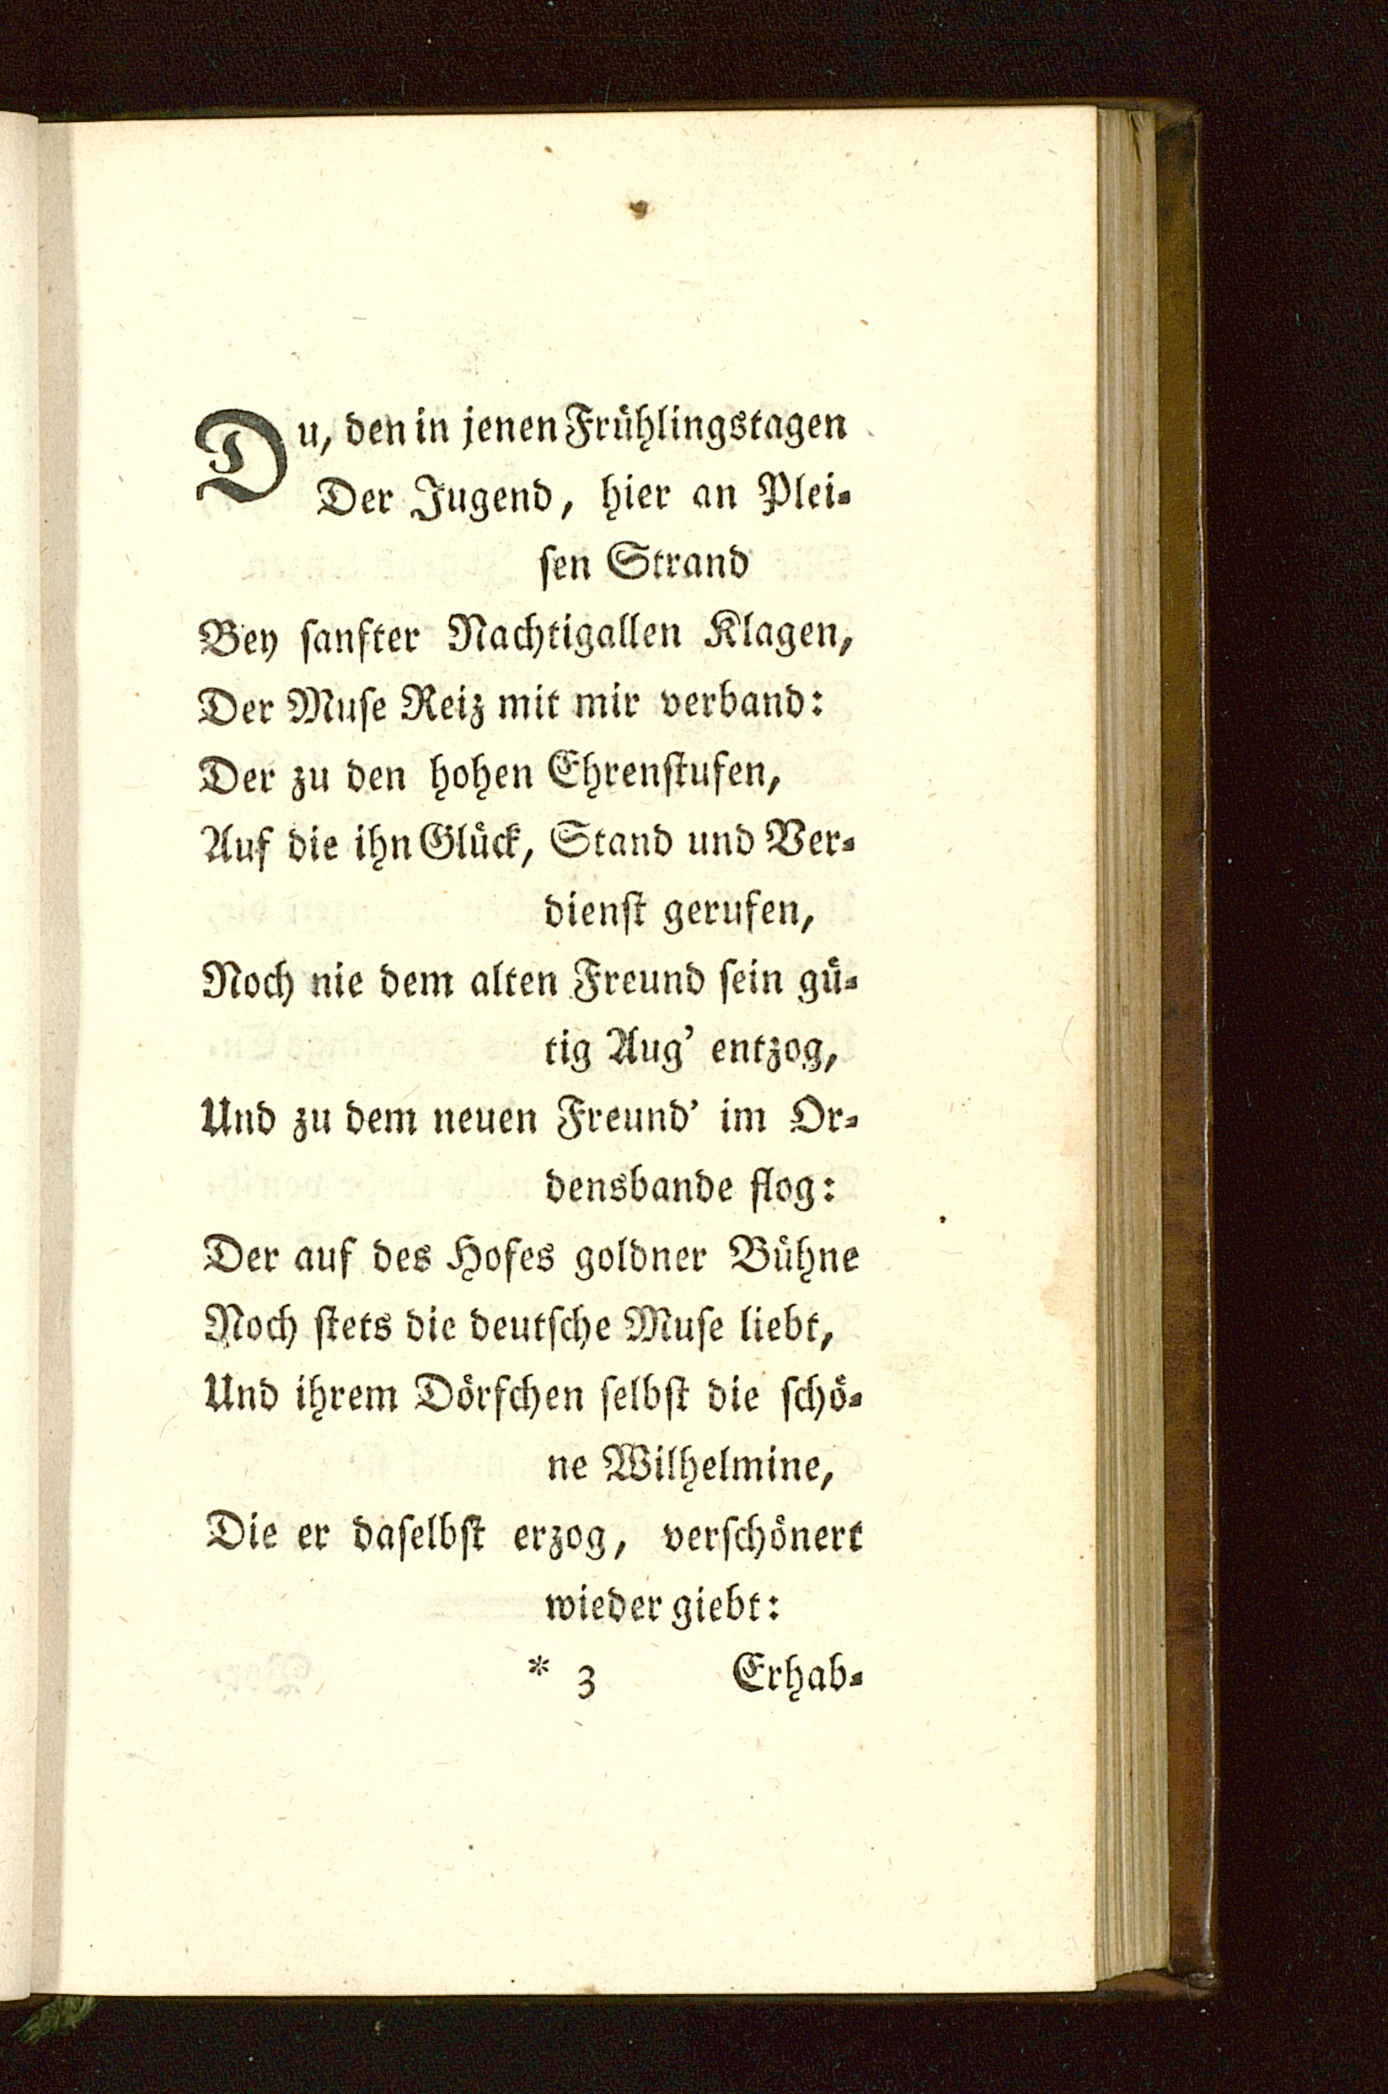 Du, den in jenen Frühlingstagen
Der Jugend, hier an Plei-
sen Strand
Bey sanfter Nachtigallen Klagen,
Der Muse Reiz mit mir verband:
Der zu den hohen Ehrenstufen,
Auf die ihn Glück, Stand und Ver-
dienst gerufen,
Noch nie dem alten Freund sein gü-
tig Aug' entzog,
Und zu dem neuen Freund' im Or-
densbande flog:
Der auf des Hofes goldner Bühne
Noch stets die deutsche Muse liebt,
Und ihrem Dörfchen selbst die schö-
ne Wilhelmine,
Die er daselbst erzog, verschönert
wieder giebt:
* 3 Erhab-